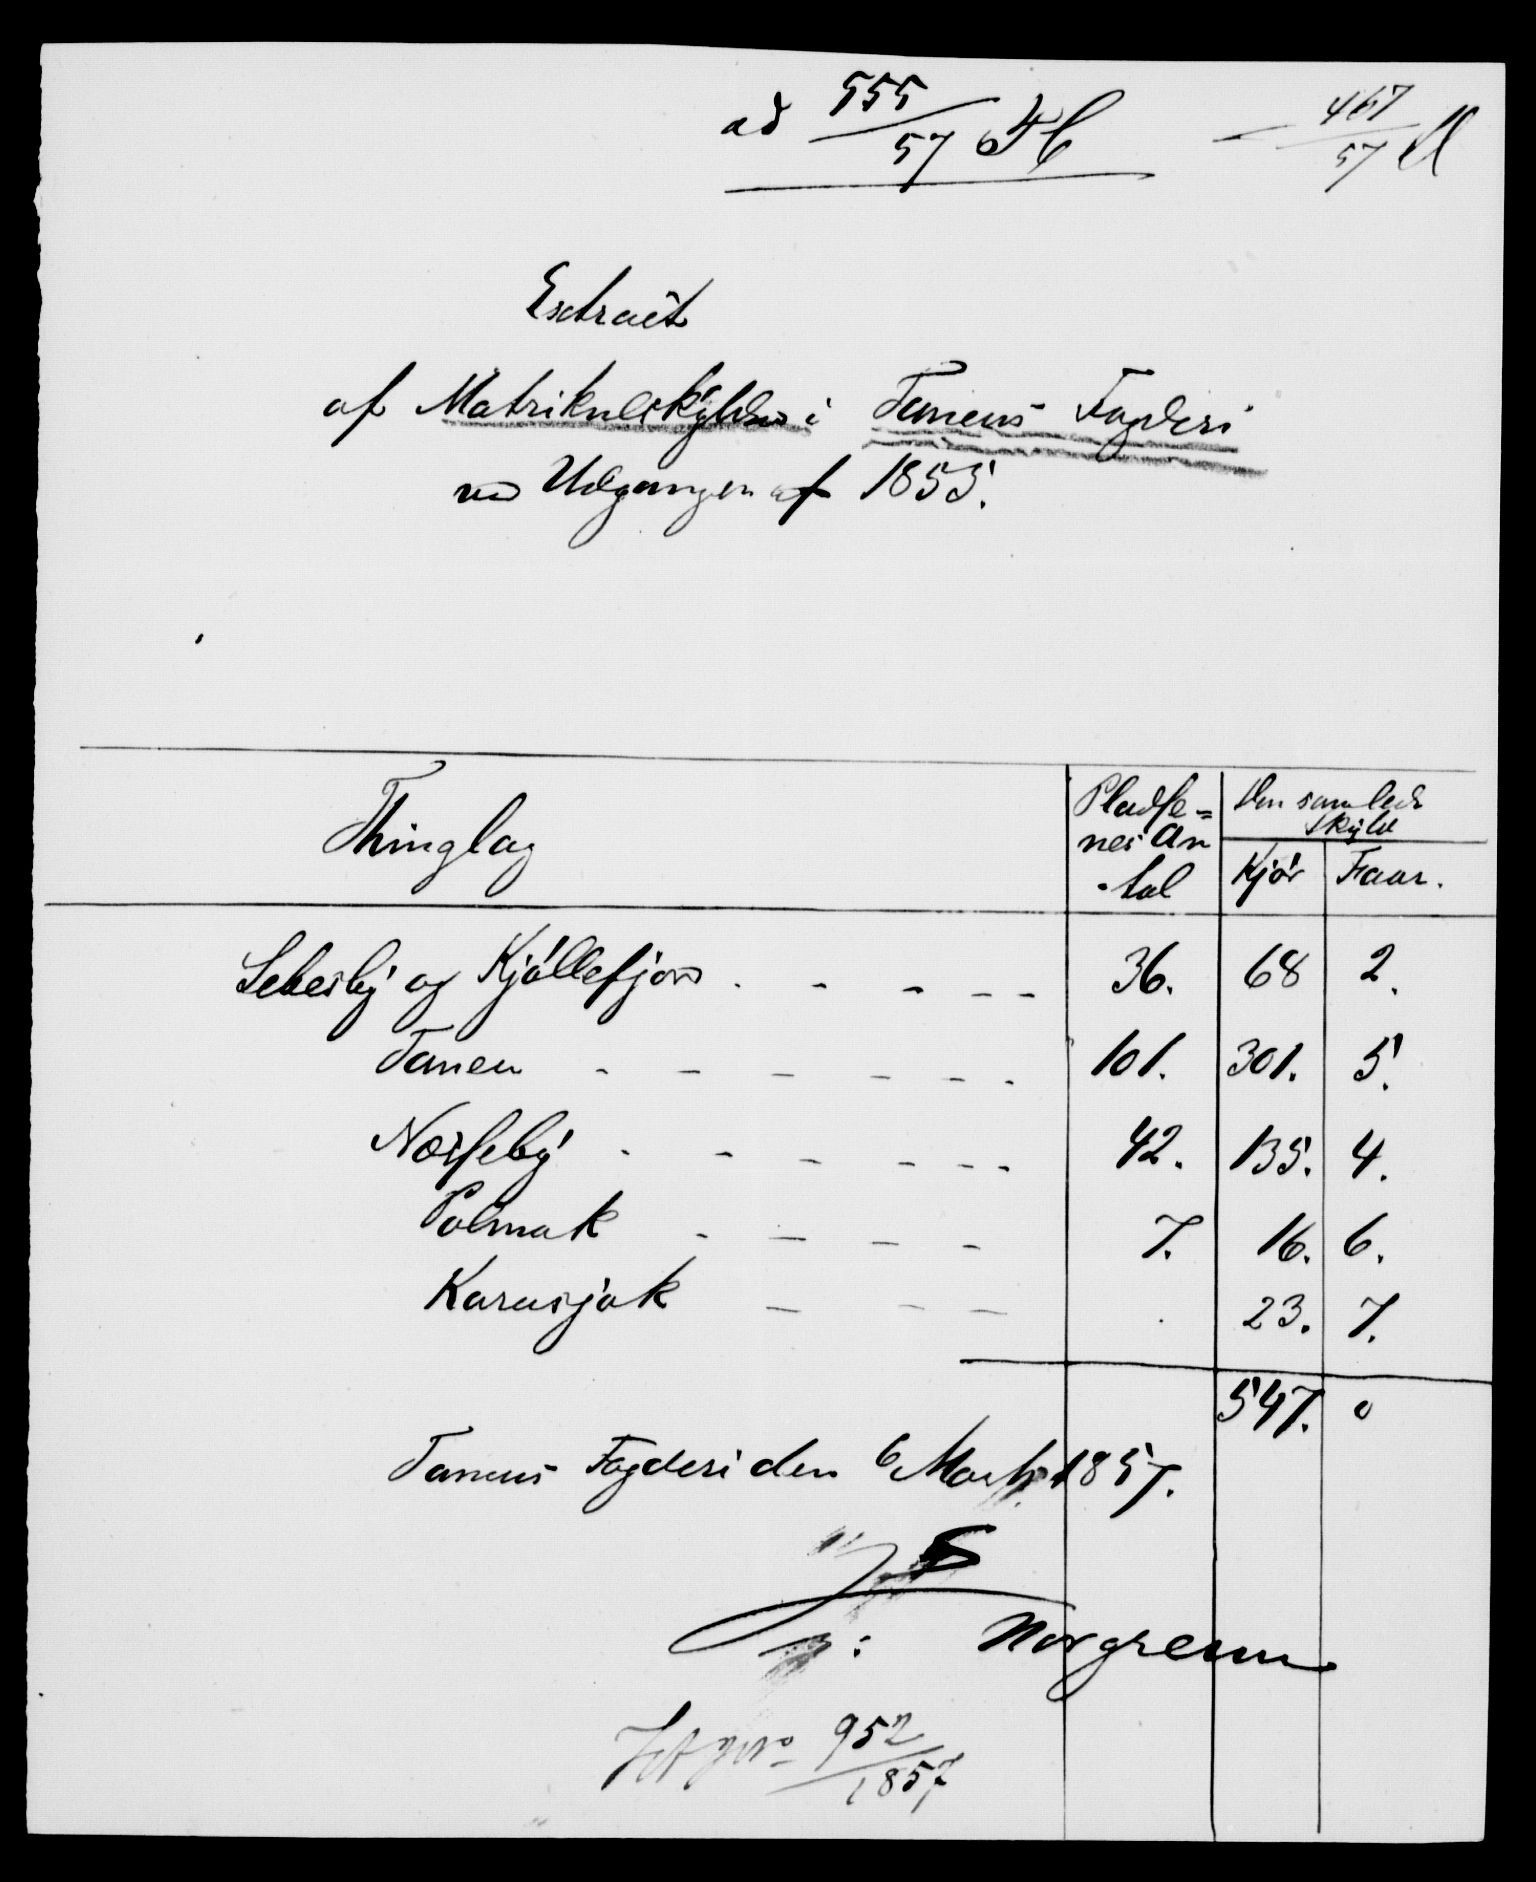 ad 555/57
467/57
Extract
af Matrikulskylden i Tanens Fogderi
ved Udgangen af 1855.
Thinglag
Pladse=
nes An
-tal
Den samlede
Skyld
Kjör Faar.
Lebesby og Kjöllefjord . - - - - - 36. 68 2.
Tanen - - - - - - 101. 301. 5.
Næsseby - - - - - - 42. 135. 4.
Polmak - - - - 7. 16. 6.
Karasjok - - - 23. 7.
547. 0
Tanens Fogderi den 6 Marts 1857.
Norgreen
952/1857